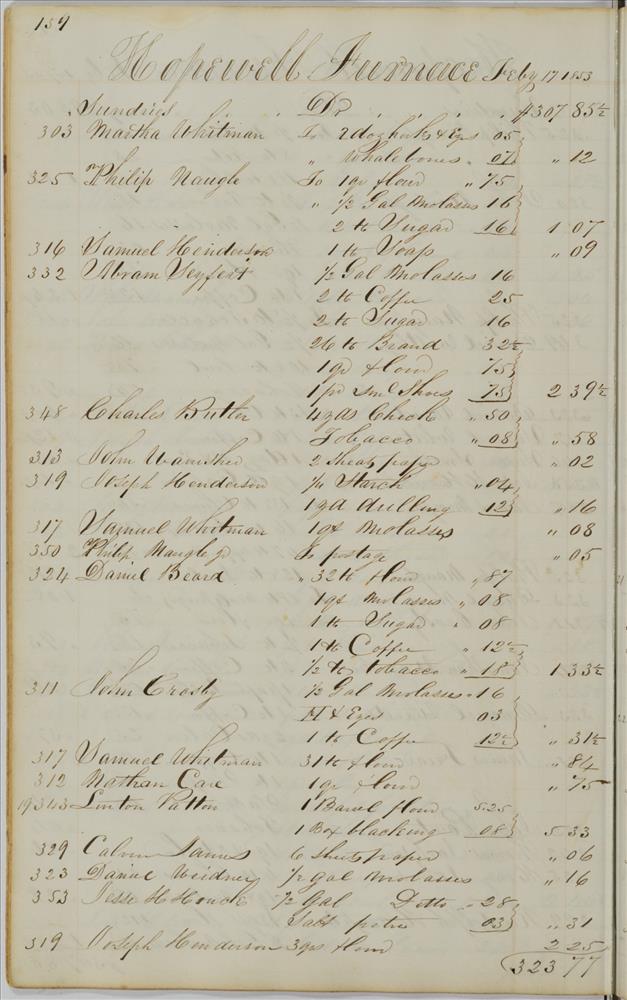 154
Hopewell Furnace Feby 17 1853
Sundries Dr $307 85½
303 Martha Whitman To 2 doz hooks & Eyes 05
" Whale bones " 07 " 12
325 Philip Naugle To 1 qr flour " 75
" ½ Gal Molasses 16
2 lb Sugar 16 1 07
316 Samuel Henderson 1 lb Soap " 09
332 Abram Seyfert ½ Gal Molasses 16
2 lb Coffe 25
2 lb Sugar 16
26 lb Brand 32½
1 qr flour 75
1 pr Shoes 75 2 39½
348 Charles Butler 4 yds Check " 50
Tobacco " 08 " 58
313 John 2 Sheets paper " 02
319 Joseph Henderson Starch " 04
1 yd 12 " 16
317 Samuel Whitman 1 qt Molasses " 08
350 Philip Naugle jr To postage " 05
324 Daniel Beard " 32 lb flour " 87
1 qt Molasses " 08
1 lb Sugar " 08
1 lb Coffe " 12½
½ lb tobacco " 18 1 33½
311 John Crosby ½ Gal Molasses " 16
H & Eyes 03
1 lb Coffe 12½ " 31½
317 Samuel Whitman 31 lb flour " 84
312 Nathan Care 1 qr flour " 75
19 343 Linton Patton 1 Barrel flour 5.25
1 Box blacking 08 5 33
329 Calvin James 6 Sheets paper " 06
323 Daniel Weidner ½ gal Molasses " 16
353 Jesse H Houck ½ Gal Ditto " 28
Salt petre 03 " 31
319 Joseph Henderson 3 qrs flour 2 25
323 77